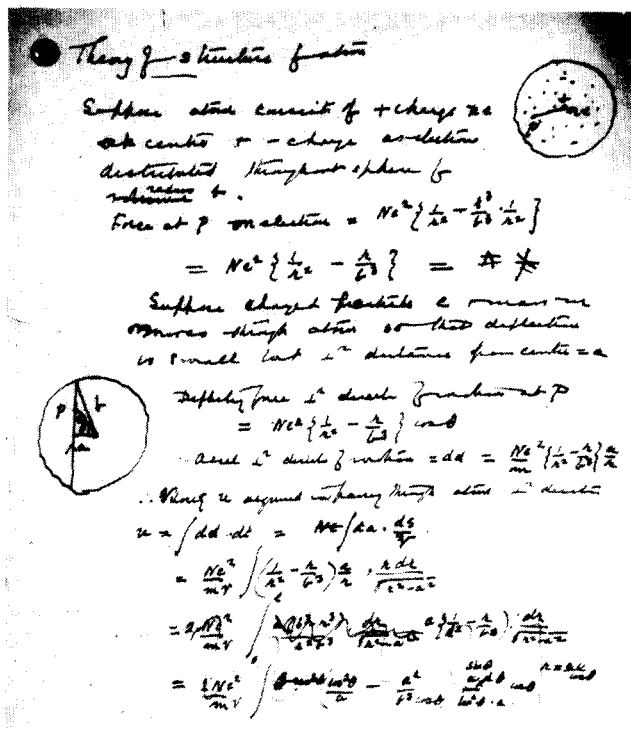 Theory of structure of atom
Suppose atom consists of + charge ne
at centre + - charge as electrons
distributed throughout sphere of
radius b.
Force at P on electron = Ne² { 1/r² - r³/b³ · 1/r² }
= Ne² { 1/r² - r/b³ } =
Suppose charged particle e mass m
moves through atom so that deflection
is small and ⊥ʳ distance from centre = a
Deflecting force ⊥ʳ direction of motion at P
= Ne² { 1/r² - r/b³ } cos θ
∴ accel ⊥ʳ direction of motion = dd = Ne²/m { 1/r² - r/b³ } a/r
∴ Velocity u acquired in passing through atom ⊥ʳ direction
u = ∫ dd · dt = ∫ · ds/V
= Ne²/mV ∫ ( 1/r² - r/b³ ) a/r · r dr/√r² - a²
= 2 Ne²/mV ∫ a { 1/r² - r/b³ } · dr/√r² - a²
= 2Ne²/mV ∫ cos²θ/a - a²/b³ cos θ
P b a
P ne